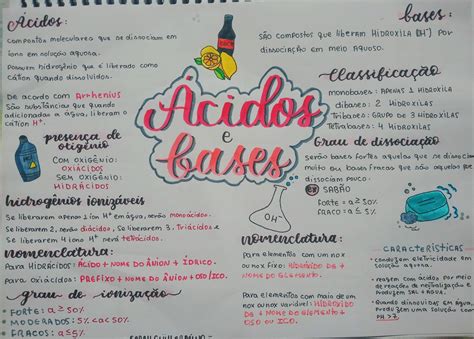 Ácidos:
compostos moleculares que se dissociam em
íons em solução aquosa.
Possuem hidrogênio que é liberado como
cátion quando dissolvidos.
De acordo com Arrhenius
São substâncias que quando
adicionadas a água, liberam o
cátion H⁺.
presença de
oxigênio
COM OXIGÊNIO:
OXIÁCIDOS
SEM OXIGÊNIO:
HIDRÁCIDOS
hidrogênios ionizáveis
Se liberarem apenas 1 íon H⁺ em água, serão monoácidos.
Se liberarem 2, serão diácidos, Se liberarem 3, Triácidos e
Se liberarem 4 íons H⁺ será tetrácidos.
nomenclatura:
Para HIDRÁCIDOS: ÁCIDO + NOME DO ÂNION + ÍDRICO.
Para OXIÁCIDOS: PREFIXO + NOME DO ÂNION + OSO/ICO.
grau de ionização
FORTE: α ≥ 50%
MODERADOS: 5% ≤ α ≤ 50%
FRACOS: α ≤ 5%
Ácidos
e
bases
bases:
SÃO COMPOSTOS QUE LIBERAM HIDROXILA (OH⁻) POR
DISSOCIAÇÃO EM MEIO AQUOSO.
Classificação
MONOBASES: APENAS 1 HIDROXILA
DIBASES: 2 HIDROXILAS
TRIBASES: GRUPO DE 3 HIDROXILAS
TETRABASES: 4 HIDROXILAS
Grau de dissociação
SERÃO BASES FORTES AQUELAS QUE SE DISSOCIAM
MUITO OU BASES FRACAS QUE SÃO AQUELAS QUE
DISSOCIAM POUCO.
EX SABÃO
FORTE = α ≥ 50%
FRACO = α ≤ 5%
OH⁻
nomenclatura:
Para elementos com um nox
ou nox fixo: HIDRÓXIDO DE +
NOME DO ELEMENTO.
Para elementos com mais de um
nox ou nox variável: HIDRÓXIDO DE +
NOME DO ELEMENTO +
OSO OU ICO.
CARACTERÍSTICAS
conduzem eletricidade em
solução aquosa.
reagem com ácidos por meio
de reações de neutralização e
produzem SAL + ÁGUA
Quando dissolvidas em água,
produzem uma solução com
PH > 7